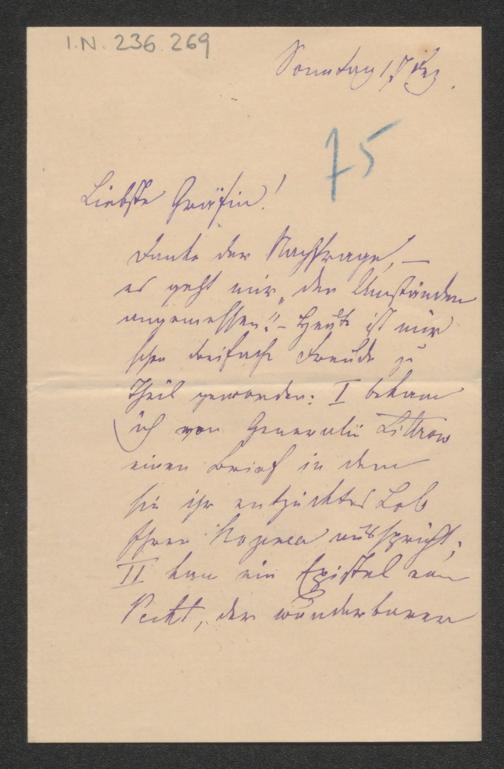 I.N. 236.269
Sonntag 17 Dez.
75
Liebste Gräfin!
Danke der Nachfrage, —
es geht mir „den Umständen
angemessen." – Heute ist mir
schon dreifache Freude zu
Theil geworden: I bekam
ich von Generalin Littrow
einen Brief in dem
sie ihr entzücktes Lob
Ihrer ausspricht;
II kam ein Epistel von
Pecht, der wunderbaren